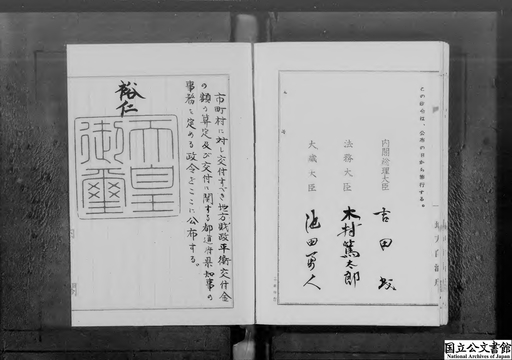 この政令は、公布の日から施行する。
内閣総理大臣 吉田茂
法務大臣 木村篤太郎
大蔵大臣 池田勇人
市町村に対し交付すべき地方財政平衡交付金
の額の算定及び交付に関する都道府県知事の
事務を定める政令をここに公布する。
裕仁
天皇
御璽
国立公文書館
National Archives of Japan